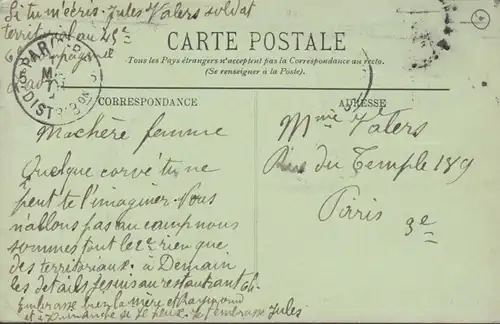 Si tu m'écris. Jules Valers soldat
territorial au 45e
6e Compagnie
CARTE POSTALE
Tous les Pays étrangers n'acceptent pas la Correspondance au recto.
(Se renseigner à la Poste).
PARIS
DISTRIB
CORRESPONDANCE
ADRESSE
Ma chère femme
Quelque corvé tu ne
peut te l'imaginer. Nous
n'allons pas au camp nous
sommes tout le 2e rien que
des territoriaux. à Demain
les détails. Je suis au restaurant 6h.
Embrasse bien la mère et Raymond
et à Dimanche si je peux. Je t'embrasse Jules
Mme Valers
Rue du Temple 189
Paris
3e